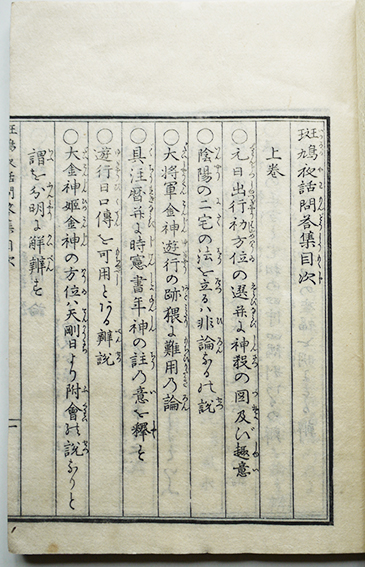 斑鳩夜話問答集目次
上巻
○元日出行初方位の選并に神殺の図及び趣意
○陰陽の二宅の法を立るハ非論なるの説
○大将軍金神遊行の跡猥に難用の論
○具注暦并に時憲書年神の註の意を釋す
○遊行日口傳を可用とある辯説
○大金神姫金神の方位ハ天剛日より附會の説なりと
謂を分明に解辯す
斑鳩夜話問答集目次
一